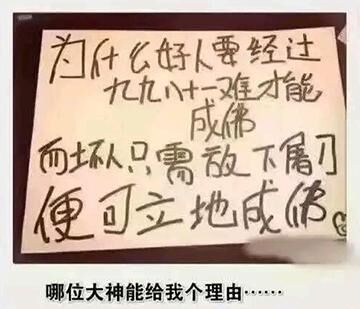 为什么好人要经过
九九八十一难才能
成佛
而坏人只需放下屠刀
便可立地成佛。
哪位大神能给我个理由……